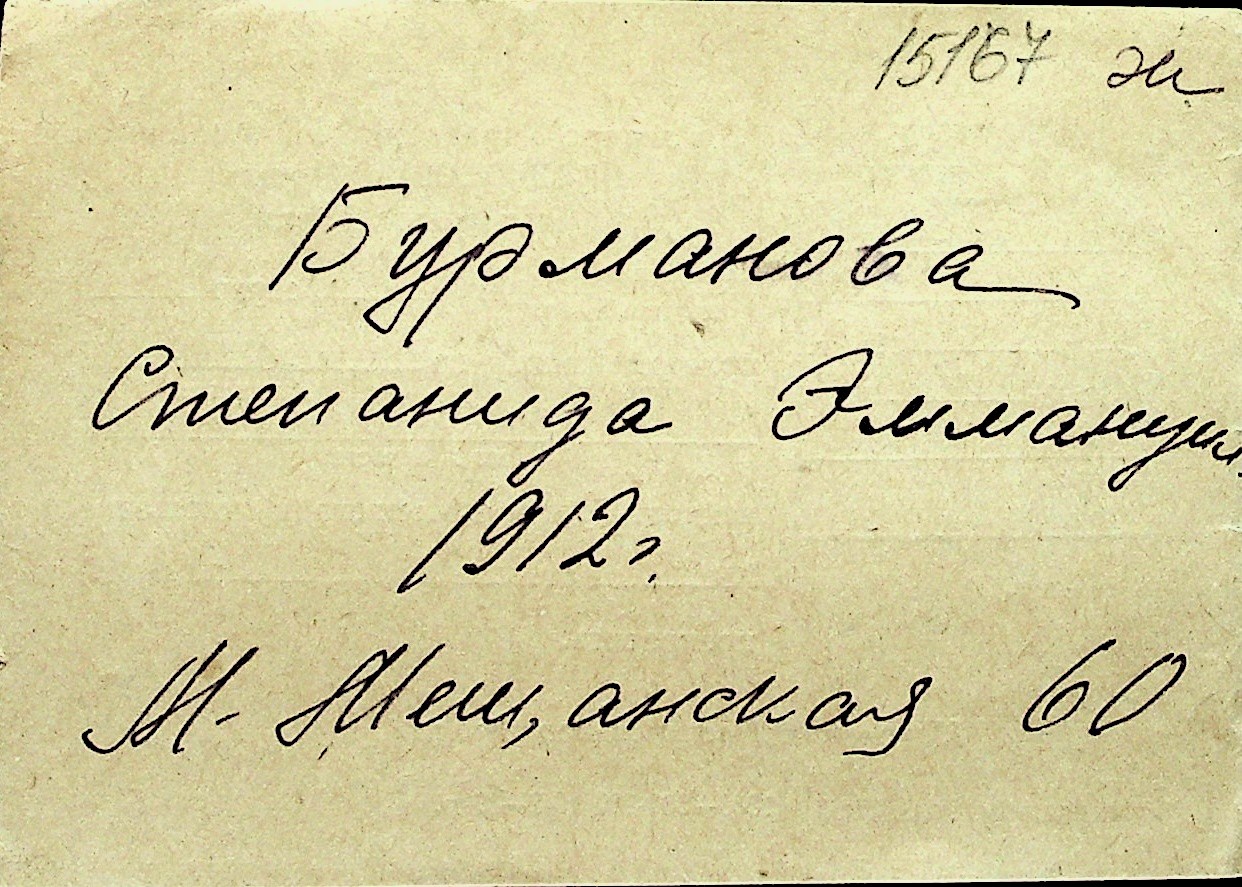 15167 эк
Бурманова
Степанида Эммануил.
1912 г.
М. Мещанская 60